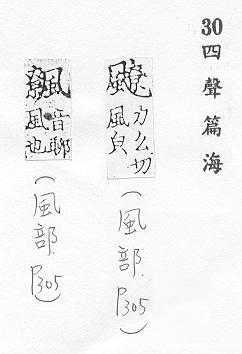 30四聲篇海
飉
力么切
風皃
(風部.P305)
音聊
風也
(風部.P305)